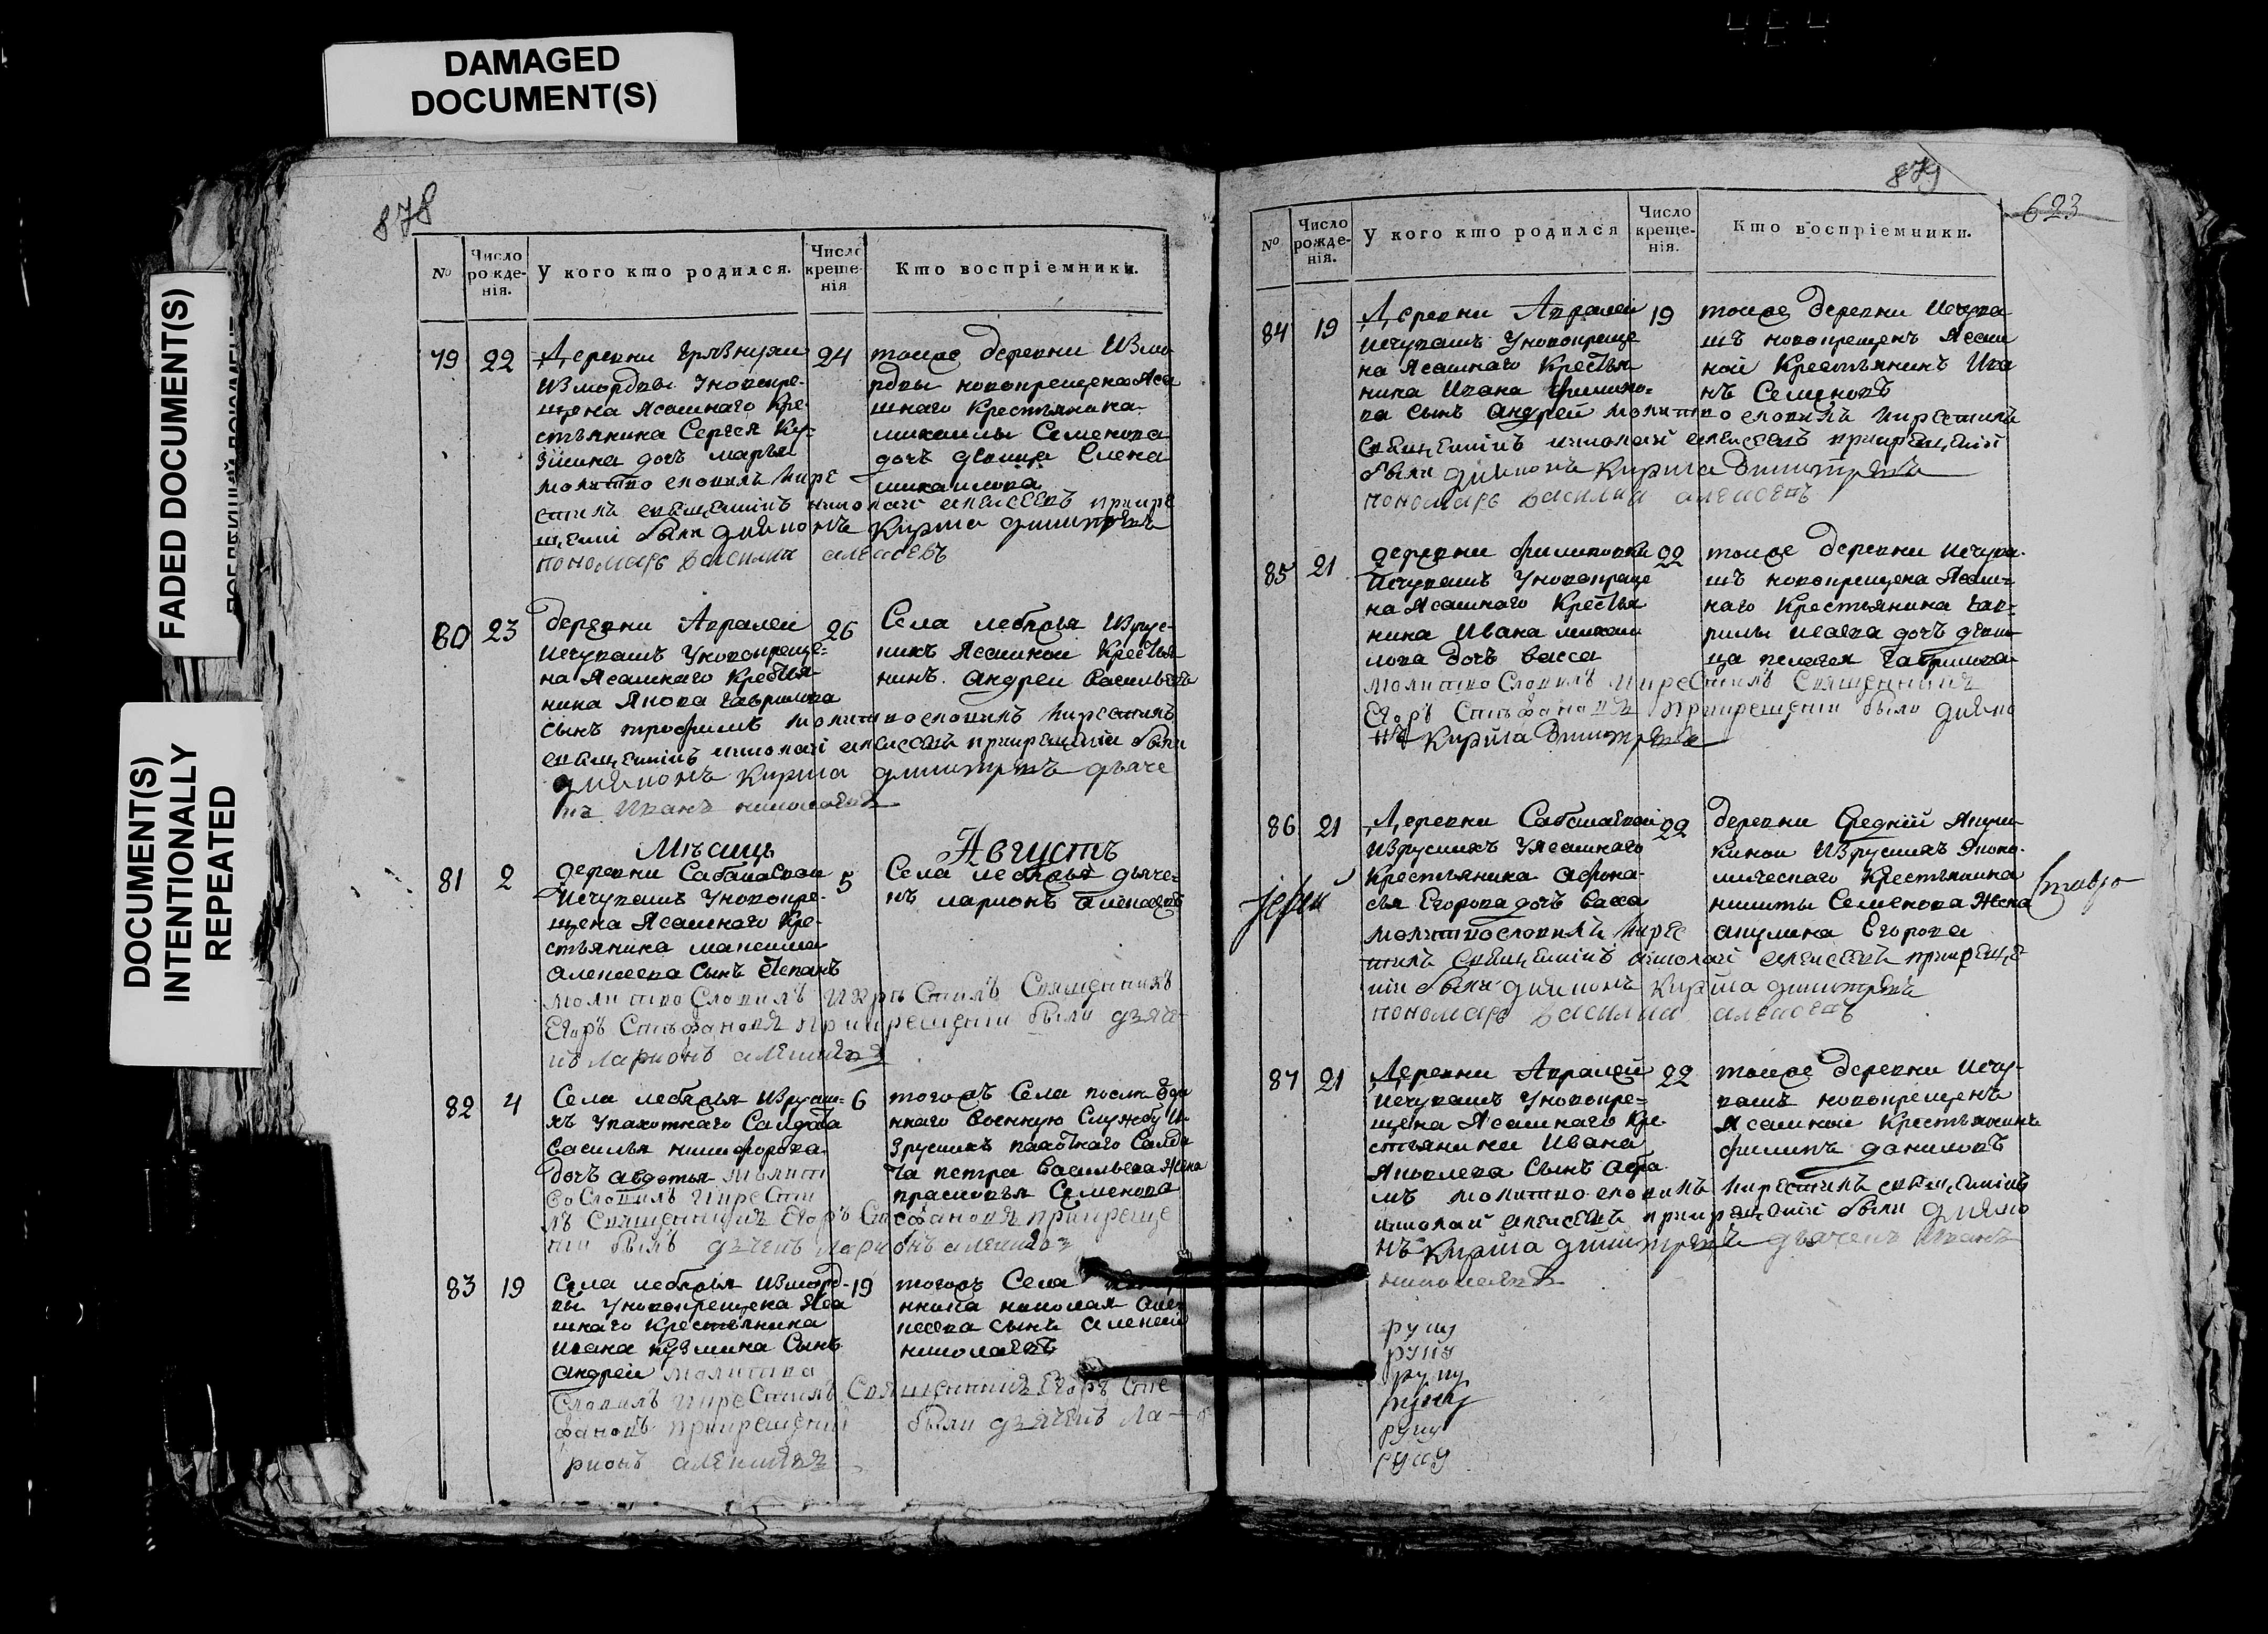 DAMAGED
DOCUMENT(S)
FADED DOCUMENT(S)
DOCUMENT(S)
INTENTIONALLY
REPEATED
878
№
Число рожде-нія.
У кого кто родился.
Число креще-нія
Кто воспріемники.
79 22
Деревни
Измордвы Уновокре-
щена Ясашнаго Кре-
стьянина Сергея Ку-
змина дочь марья
молитво словилъ икре
стилъ священникъ николай алексеевъ прикре
щении были диаконъ Кирила димитревъ
пономарь василии алексеевъ
24
тоиже деревни Измо
рдвы новокрещена Яса
шнаго Крестьянина
михаилы Семенова
дочь девица Елена
михаилова
80 23
деревни Авралеи
Изчувашъ Уновокреще-
на Ясашнаго Крестья-
нина Якова Гаврилова
сынъ трофимъ молитвословилъ икрестилъ
священникъ николай алексеевъ прикрещении были
диаконъ Кирила димитревъ дьяче
къ Иванъ николаевъ
26
Села лебяжья Изрус-
кихъ Ясашнои Крестья
нинъ Андреи Васильевъ
Мѣсяцъ Августъ
81 2
деревни Сабакаевои
Изчувашъ Уновокре-
щена Ясашнаго Кре-
стьянина максима
Алексеева Сынъ Степанъ
молитво Словилъ икрестилъ Священникъ
Егоръ Стефановъ прикрещении были дьяче-
къ ларионъ алексеевъ
5
Села лебяжья дьяче-
къ ларионъ Алексеевъ
82 4
Села лебяжья Изруски-
хъ Упахотнаго Салдата
Василья никифорова
дочь авдотья молит
во Словилъ икрести
лъ Священникъ Егоръ Стефановъ прикреще
нии былъ дьячекъ ларионъ алексеевъ
6
тогожъ Села
ннаго военную Службу И-
зрускихъ пахотнаго Салда
та петра Васильева Жена
прасковья Семенова
83 19
Села лебяжья Измord-
вы Уновокрещена Яса
шнаго Крестьянина
Ивана Кузмина Сынъ
Андреи молитво
Словилъ икрестилъ Священникъ Егоръ Сте
фановъ прикрещении были дьячекъ Ла-
рионъ алексеевъ
19
тогожъ Села
нника николая Але
ксеева сынъ алексеи
николаевъ
879
623
№
Число рожде-нія.
У кого кто родился
Число креще-нія.
Кто воспріемники.
84 19
Деревни Авралеи
Изчувашъ Уновокреще
на Ясашнаго Крестья
нина Ивана
ва сынъ андрей молитво словилъ икрестилъ
священникъ николай алексеевъ прикрещении
были диаконъ Кирила димитревъ
пономарь василии алексеевъ
19
тоиже деревни Изчува
шъ новокрещенъ Ясаш
ной Крестьянинъ Ива
нъ Семеновъ
85 21
деревни филиповки
Изчувашъ Уновокреще
на Ясашнаго Крестья
нина Ивана михаи
лова дочь васса
молитво Словилъ икрестилъ Священникъ
Егоръ Стефановъ прикрещении были диако
нъ Кирила димитревъ
22
тоиже деревни Изчува-
шъ новокрещена Ясаш-
наго Крестьянина Гав-
рилы Исаева дочь деви-
ца пелагея Гаврилова
86 21
Деревни Сабакаевои
Изрускихъ Уясашнаго
Крестьянина Афона-
сья Егорова дочь Васса
молитвословилъ икрес
тилъ священникъ николай алексеевъ прикреще
нии были диаконъ Кирила димитревъ
пономарь василии алексеевъ
22
деревни Средней
Изрускихъ Эконо-
мическаго Крестьянина
никиты Семенова Жена
акулина Егорова
87 21
Деревни Авралеи
Изчувашъ Уновокре-
щена Ясашнаго Кре
стьянина Ивана
Яковлева Сынъ
молитво словилъ икрестилъ священникъ
николай алексеевъ прикрещении были диако
нъ Кирила димитревъ дьячекъ Иванъ
николаевъ
22
тоиже деревни Изчу-
вашъ новокрещенъ
Ясашнои Крестьянинъ
филипъ даниловъ
руку
руку
руку
руку
руку
руку